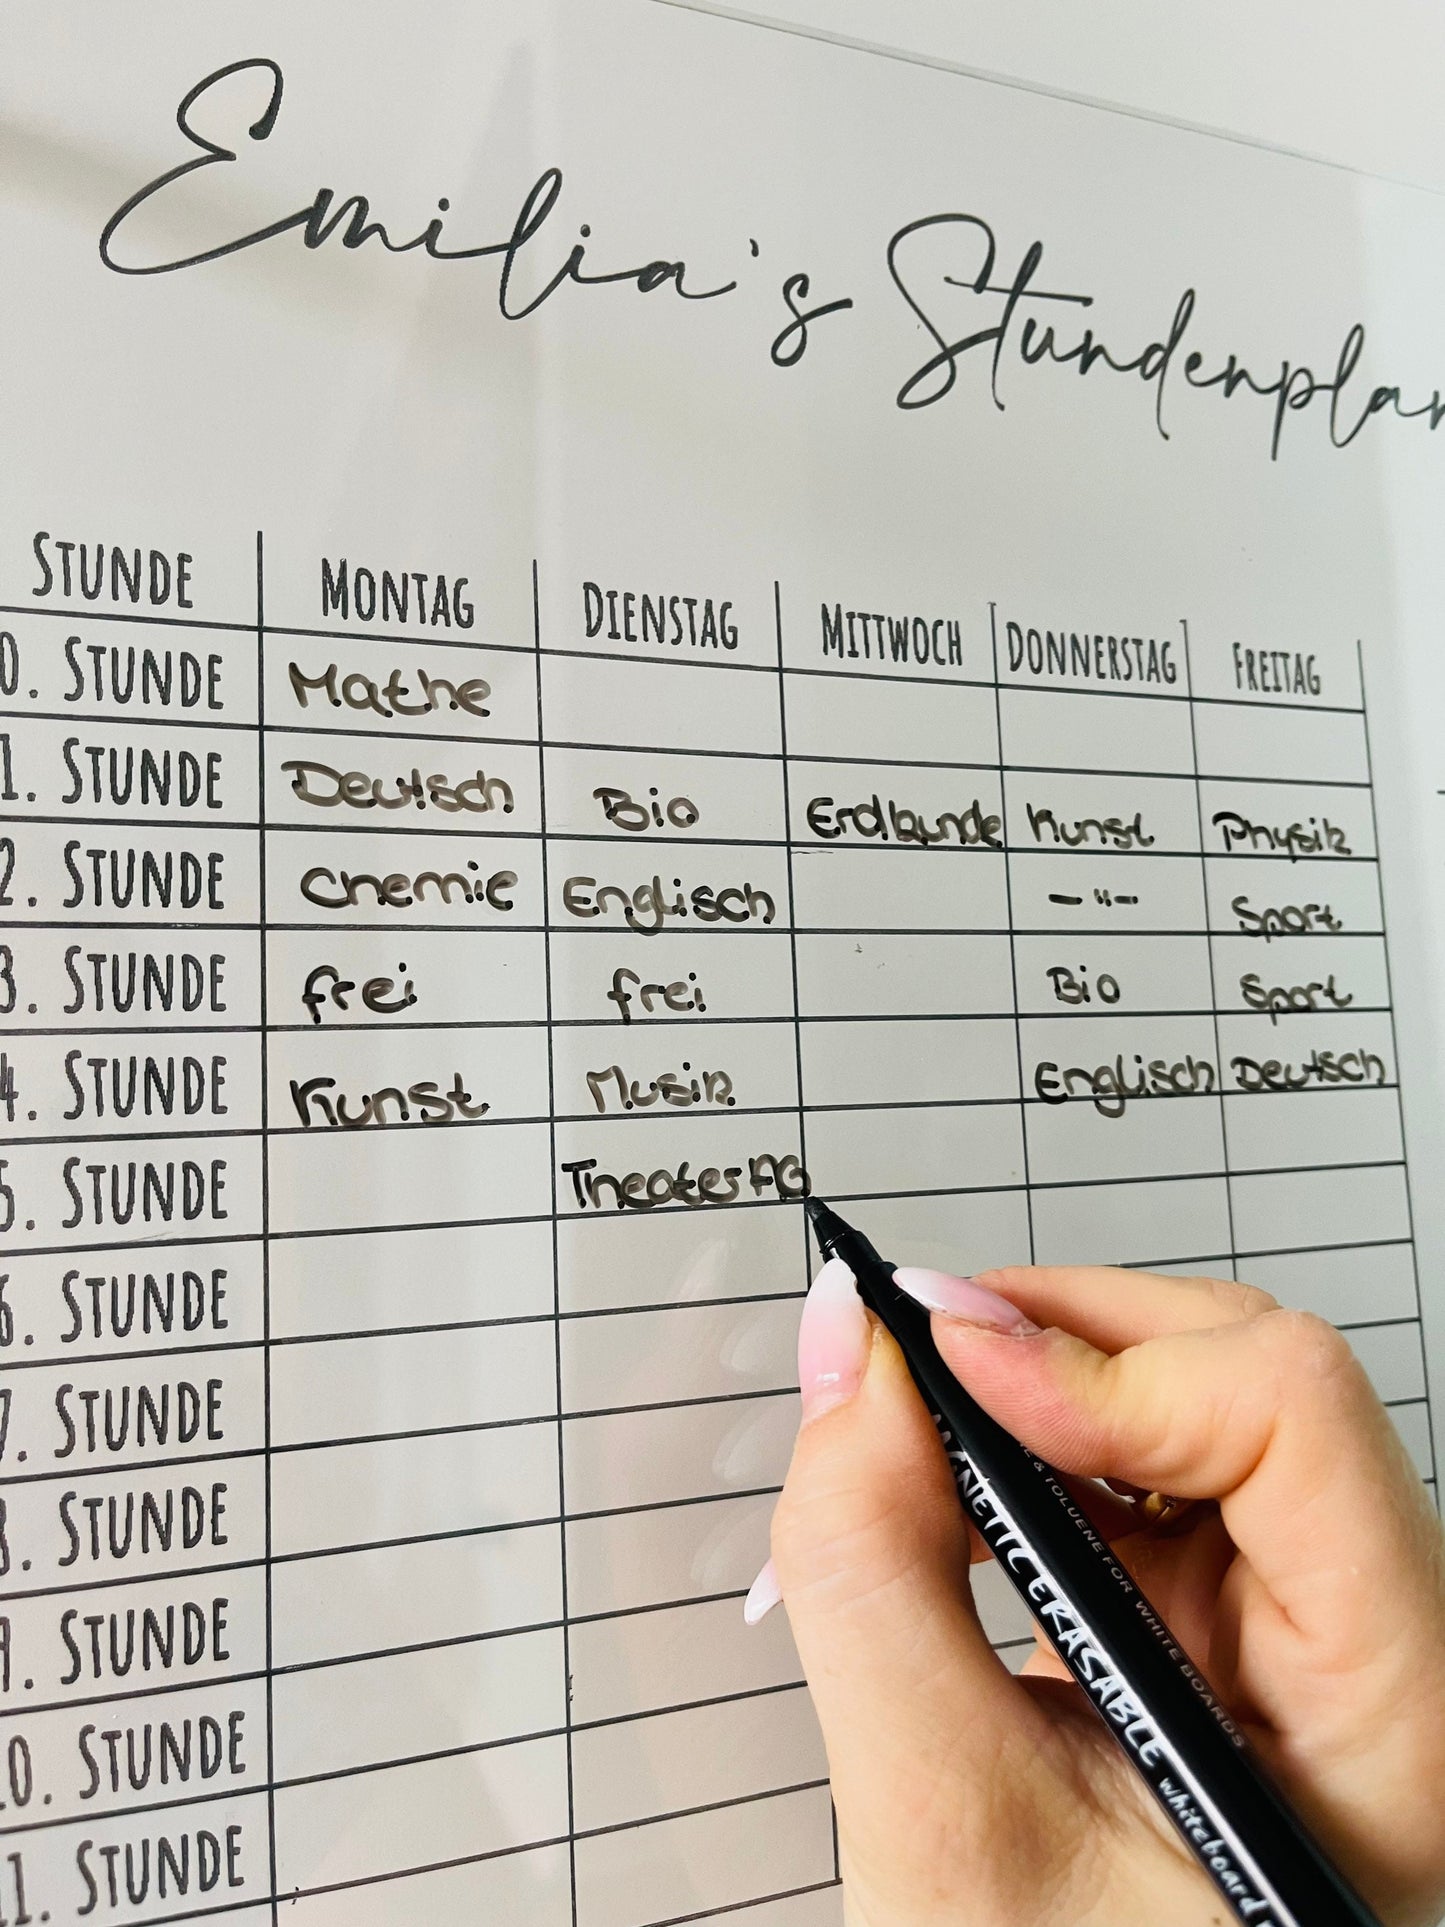 Emilia's Stundenplan
STUNDE MONTAG DIENSTAG MITTWOCH DONNERSTAG FREITAG
0. STUNDE Mathe
1. STUNDE Deutsch Bio Erdkunde Kunst Physik
2. STUNDE Chemie Englisch -"- Sport
3. STUNDE frei frei Bio Sport
4. STUNDE Kunst Musik Englisch Deutsch
5. STUNDE Theater AG
6. STUNDE
7. STUNDE
8. STUNDE
9. STUNDE
10. STUNDE
11. STUNDE
MAGNETIC ERASABLE whiteboard
& TOLUENE FOR WHITEBOARDS